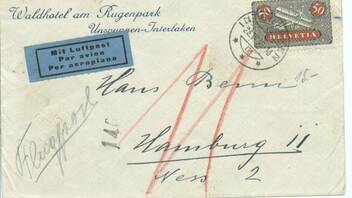 Waldhotel am Rugenpark
Unspunnen-Interlaken
50 50
HELVETIA
Mit Luftpost
Par avion
Per aeroplano
Hans Benn
15
140
Hamburg 11
Ness 2
Flugpost